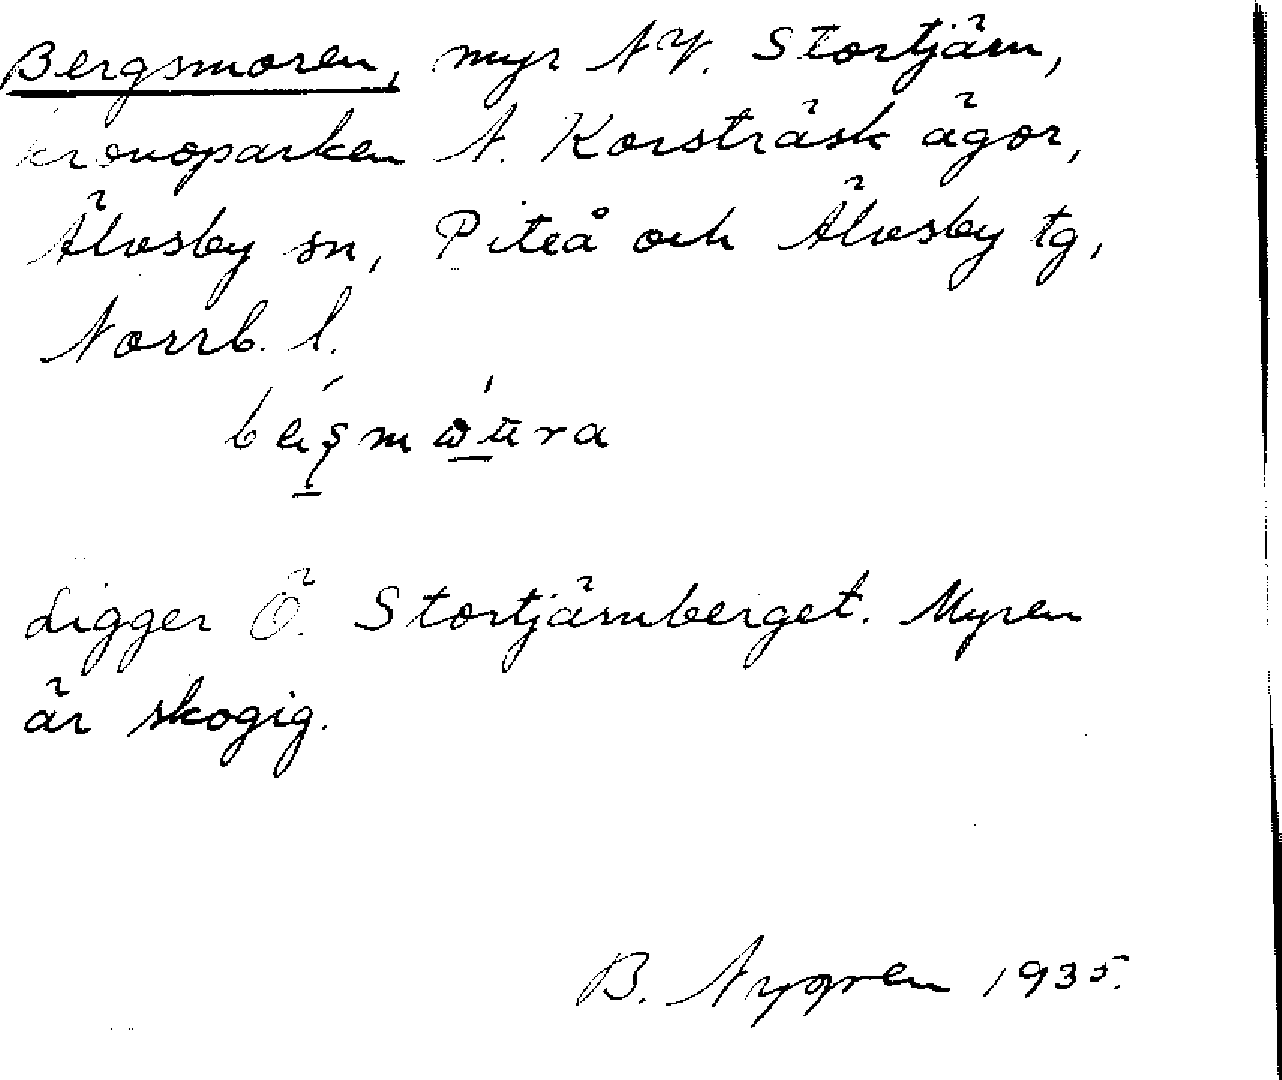 Bergsmoren, myr NV. Stortjärn,
kronoparken N. Korsträsk ägor,
Älvsby sn, Piteå och Älvsby tg,
Norrb. l.
Ligger Ö. Stortjärnberget. Myren
är skogig.
B. Nygren 1935.